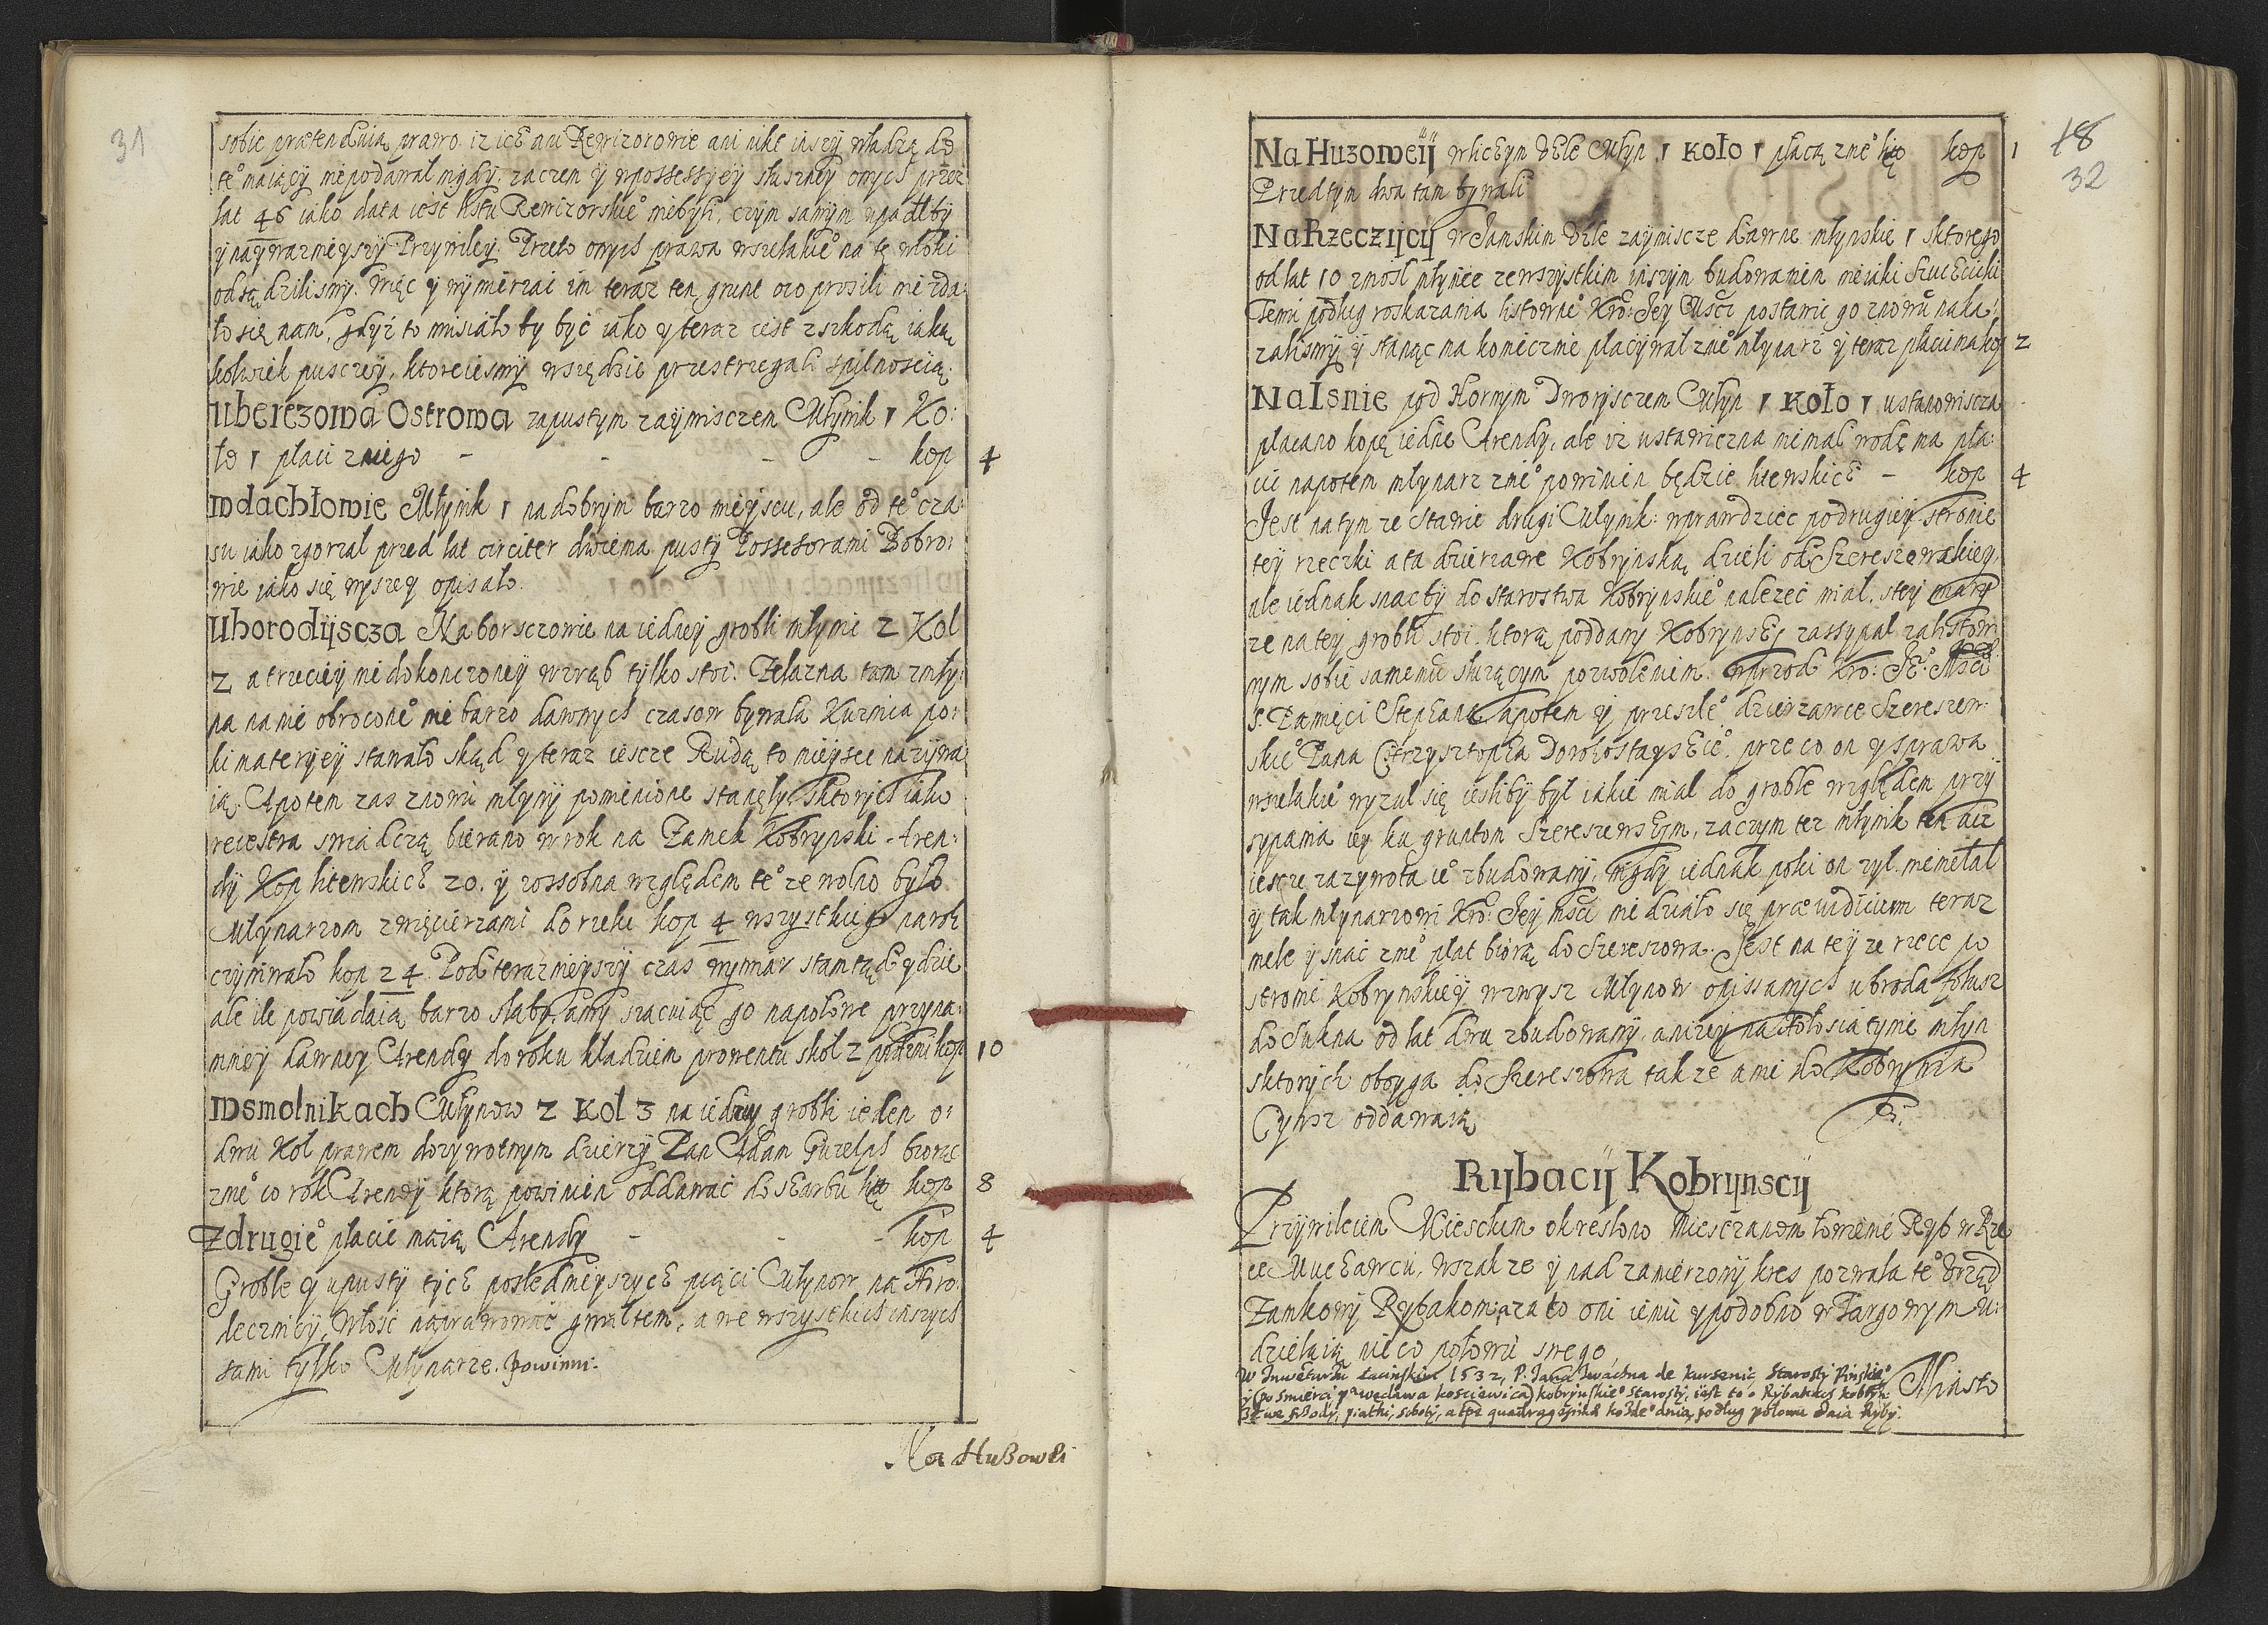 31
sobie prætenduią prawo. iz ich ani Rewizorowie ani nikt inszy władzą do
te° maiący niepodawał nigdy. zaczem y wpossessyey słuszney onych przez
lat 46 iako data iest listu Rewizorskie° niebyli, czym samym upadłby
y naywaznieyszy Przywiley. Przeto onych prawa wszelakie° na tę włoki
odsądzilismy. Więc y wymierzać im teraz ten grunt oco prosili nie zda,
ło się nam, gdyż to musiało by być iako y teraz iest z szkodą iaką
kolwiek pusczey, ktoreiesmy wszędzie przestrzegali spilnoscią.
U berezowa Ostrowa zapustym zaymisczem Młynik 1 Ko:
ło 1 płaci zniego - - - - kop 4
W dachłowie Młynik 1 na dobrym barzo mieyscu, ale od te° cza:
su iako zgorzał przed lat circiter dwiema pusty Possessorami Dobro:
wie iako się wyszey opisało.
U horodyscza Na borsczowie na iedney grobli młyni 2 Kol
2 a trzeciey niedokonczoney wzrąb tylko stoi. Zelazna tam zmły:
na nanie obrocone° nie barzo dawnych czasow bywała Kuznia po,
ki materyey stawało skąd y teraz iescze Rudą to mieysce nazywa
ią. A potem zas znowu młyny pomienione stanęły, sktorych iako
reiestra swiadczą bierano w rok na Zamek Kobrynski Aren:
dy Kop litewskich 20. y zossobna względem te° ze wolno było
Młynarzom zwięcierzami do rzeki kop 4 wszystkiego na rok
czyniwało kop 24. Pod teraznieyszy czas wymiar stamtąd ydzie
ale ile powiadaią barzo słaby, amy szacuiąc go napołowe przyna:
mniey dawney Arendy do roku kładziem prowentu skoł 2 kop 10
W smolnikach Młynow 2 Koł 3 na iedney grobli ieden o:
dwu Koł prawem dozywotnym dzierzy Pan Adam Puzelph biorąc
znie° co rok Arendy ktorą powinien oddawać do skarbu kop 8
Z drugie° płacić maią Arendy - - - kop 4
Groble y upusty tych poslednieyszych pięci Młynow na Hro:
decznicy, Włość naprawować gwałtem, a we wszystkich inszych
sami tylko Młynarze. powinni.
Na Hußowei
18
32
Na Huzoweiy wlichym dzle Młyn 1 koło 1 płacą znie° kop 1
Przedtym dwa tam bywali
Na Rzeczycy w Jamskim dzle zaymiscze dawne młynskie 1 sktorego
od lat 10 zniosł młynce zewszystkim inszym budowaniem nieiaki
Temu podług roskazania listowne° Kro: Jey Msci postawić go znowu naka:
zalismy y stanąc na konieczmie płacywał znie° młynarz y teraz płaci ma kop 2
Na Isnie pod Hornym Dworysczem Młyn 1 koło 1 ustanowiscza
płacano kopę iedne Arendy, ale iz ustawiczna niemal wodę ma pła:
cić napotem młynarz znie° powinien będzie litewskich - kop 4
Jest natym ze stawie drugi Młynik: wprawdziec podrugiey stronie
tey rzeczki a ta dzierzawe Kobrynską dzieli od Szereszewskiey,
ale iednak snacby do starostwa Kobrynskie° nalezeć miał. stey miary
ze na tey grobli stoi ktorą poddany Kobrynskj zassypał zalistow:
nym sobie samemu słuzącym pozwoleniem wprzod Kro: Je° Msci
S. Pamięci Stephana, apotem y przeszłe° dzierzawce Szereszew:
skie° Pana Chrzysztopha Dorohostayskie°. przeco on y sprawa
wszelakie° wyzuł się iesliby był iakie miał do groble względem przy
sypania iey ku gruntom Szereszewskim, zaczym tez młynik ten acz
iescze zazywota ie° zbudowany, nigdy iednak poki on zył. niemełał
y tak młynarzowi Kro: Jey Msci nie działo się præiudicium teraz
mele y snać znie° płat biorą do Szereszowa. Jest na tey ze rzece po
stronie Kobrynskiey wzwysz Młynow opissanych ubroda folusz
do sukna od lat dwu zbudowany, a nizey na tynie młyn
sktorych oboyga do Szereszowa takze a nie do Kobrynia
Cynsz oddawaią
Rybacy Kobrynscy
Przywileiem Mieskim okreslono Miesczanom łowienie Ryb w Rze
ce Muchawcu, wszakze y nad zamierzony kres pozwala te° Urząd
Zamkowy Rybakom, za to oni iemu ypodobno w Targowym u:
dzielaią nieco połowu swego.
W Inwetarzu Łacinskim 1532, P. Jana de kurzenic Starosty Pinskie°
y (po smierci pa wacława kosciewica) kobrynskie° starosty, iest to o Rybakach kobryn:
że we srody, piatki, soboty, a tpe quadragesimæ kożde° dnia, podług połowu daią Ryby.
Miasto